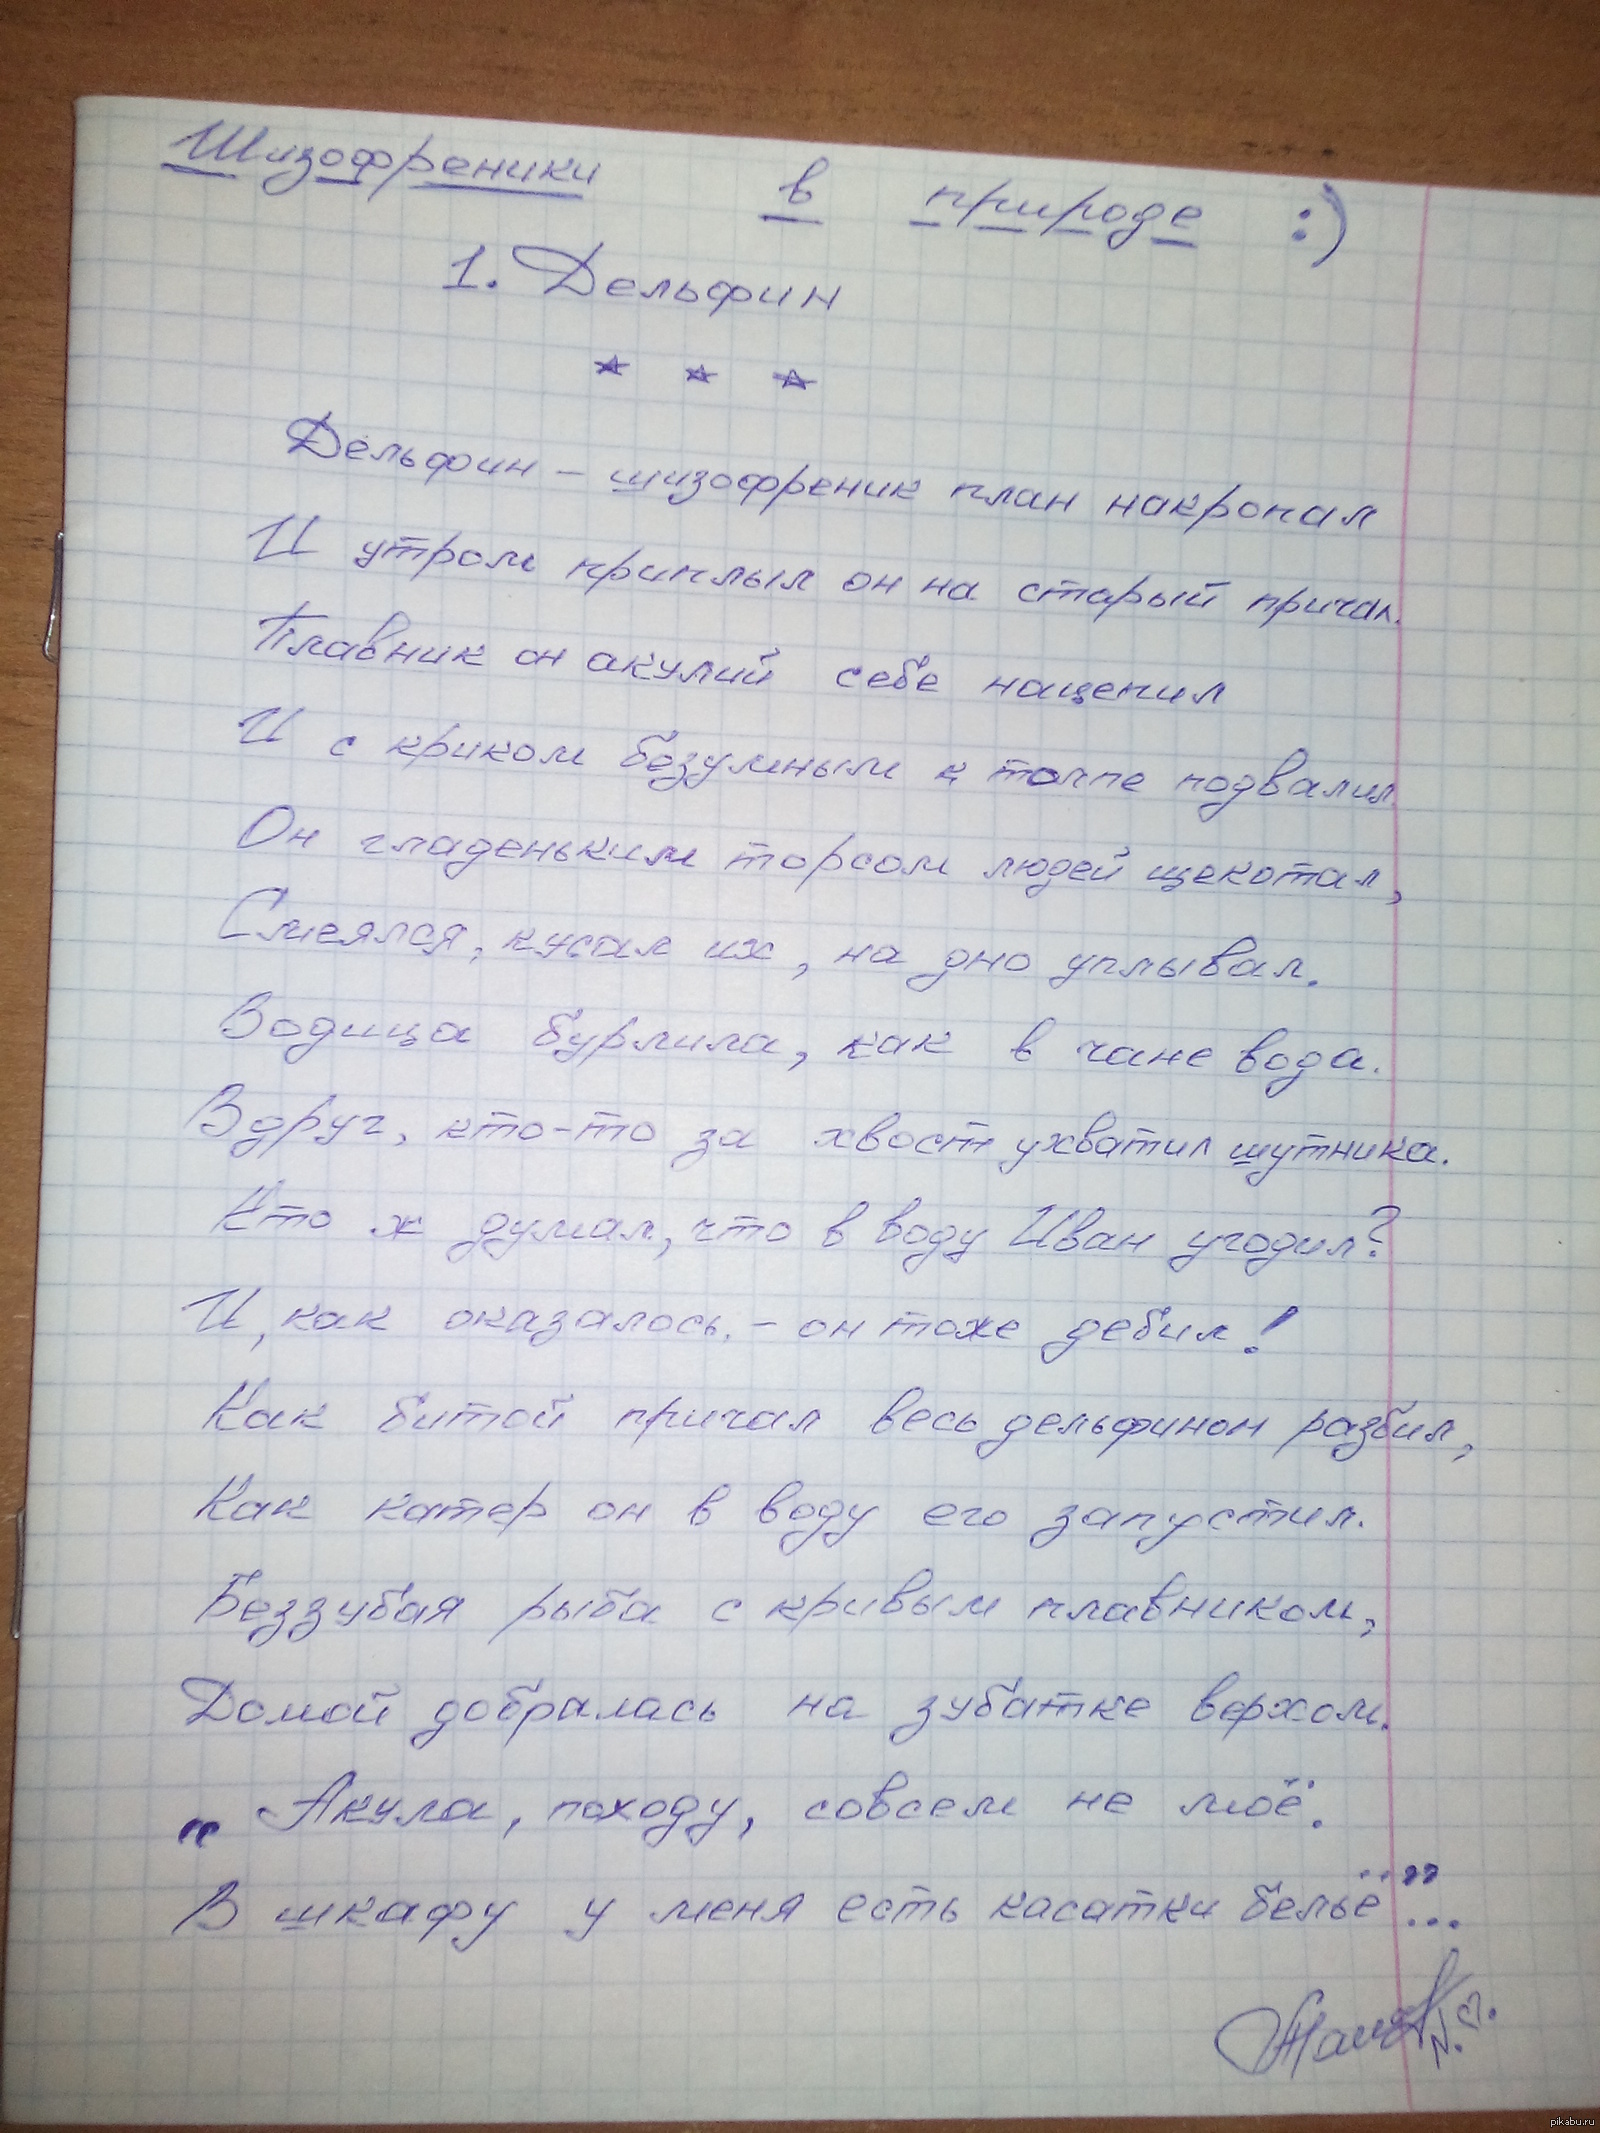 Шизофреники в природе :)
1. Дельфин
* * *
Дельфин – шизофреник план накропал
И утром приплыл он на старый причал.
Плавник он акулий себе нацепил
И с криком безумным к толпе подвалил
Он гладеньким торсом людей щекотал,
Смеялся, кусал их, на дно уплывал.
Водица бурлила, как в чане вода.
Вдруг, кто-то за хвост ухватил шутника.
Кто ж думал, что в воду Иван угодил?
И, как оказалось, – он тоже дебил!
Как битой причал весь дельфином разбил,
Как катер он в воду его запустил.
Беззубая рыба с кривым плавником,
Домой добралась на зубатке верхом.
"Акула, походу, совсем не моё.
В шкафу у меня есть касатки бельё"...
pikabu.ru